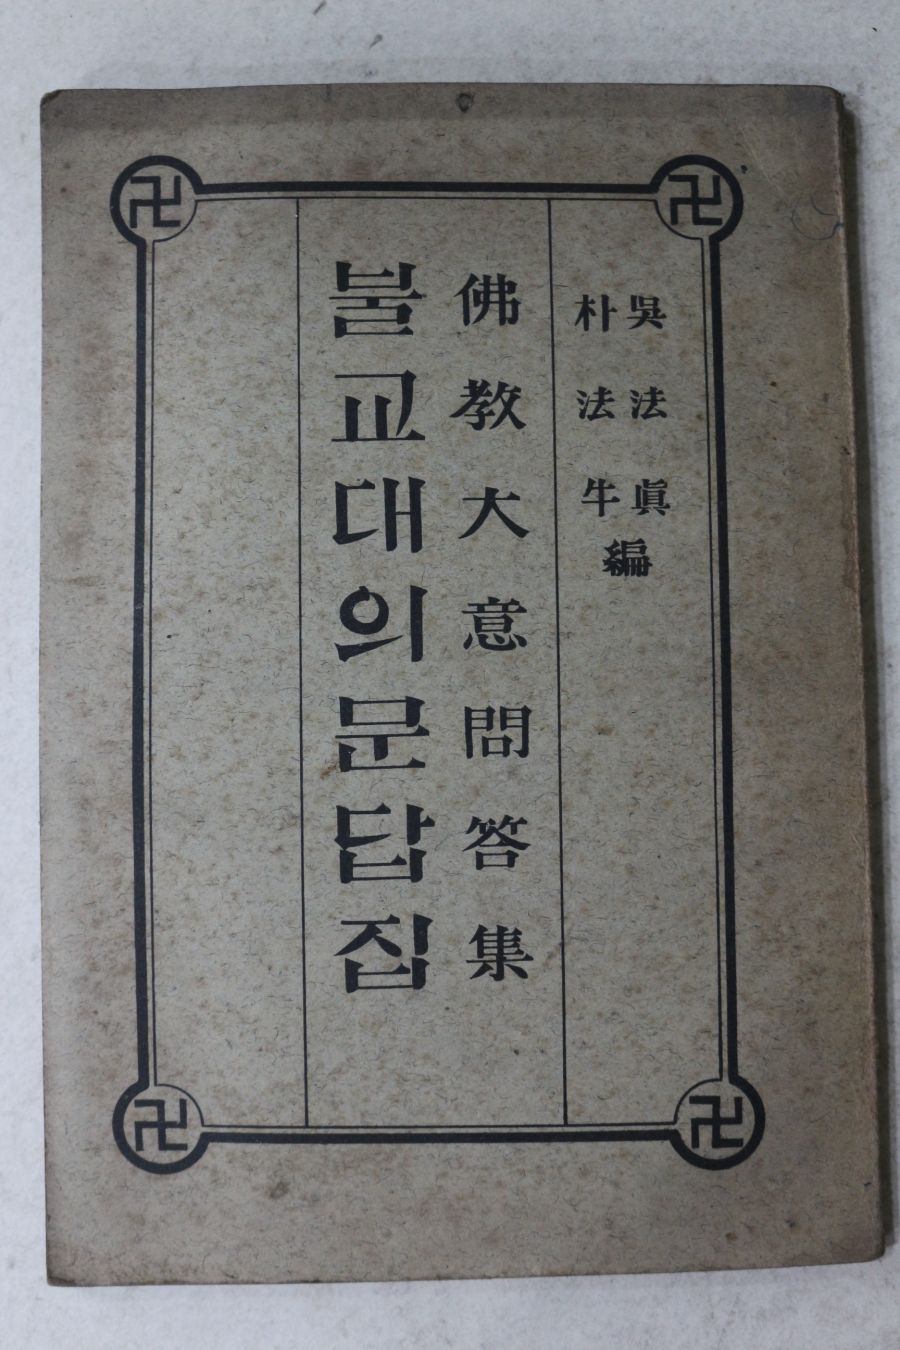 吳法眞
朴法牛
編
佛敎大意問答集
불교대의문답집